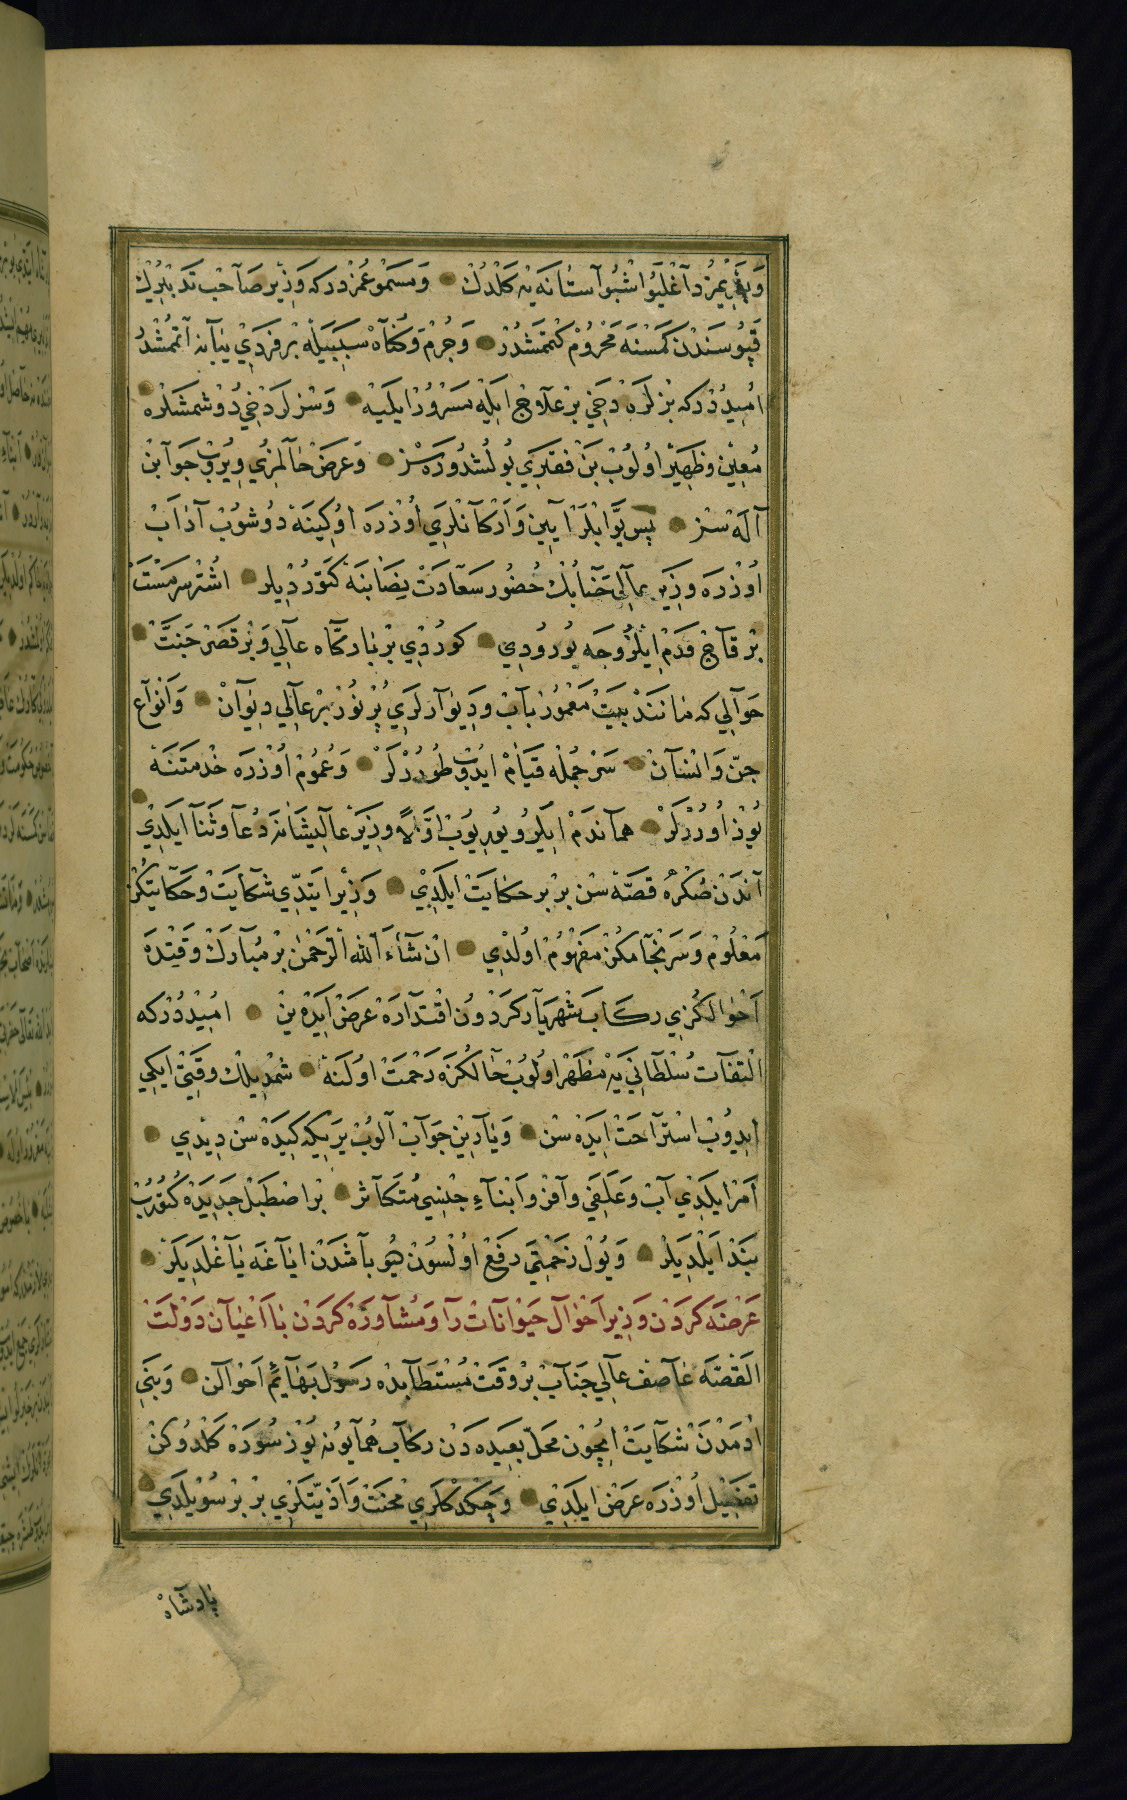 وَبِقَرِيمُزْ دآغْلَيُوْ اشْبُو آسْتَانَه يَه كَلْدُكْ وَمَسْمُوعُمُزْدُركه وَزِيْر صَآحِبْ تَدْبِيْرِكْ
قَپُوسَنْدَنْ كَمْسَنَه مَحْرُومْ كِتْمَمَشْدُرْ وَجُرْم وَكُنَآهْ سَبَبِيَلَه بِرْ فَرْدِيْ يَبَآنه آتْمَمُشْدُرْ
اُمِيْدُدْركه بِزْلَرَه دَخِي بِرْ عِلَاجْ ايلَه مَسْرُورْ ايلَيَه وَسِزْلَر دَخِي دُوشمَشْلَره
مُعِيْن وَظَهِيْرْ اُولُوبْ بَنْ فَقِيْرِيْ بُولُشْدُورَه سِزْ وَعَرْض حَآلِمِزِي وِيْرُوبْ جَوَآبِنْ
آلَه سِزْ پس بَوَّابْلَرْ آيِين وَاَرْكَآنْلَرِي اُوزْرَه اُوكِينَه دُوشُوبْ آدَابْ
اُوزْرَه وَزِير عَآلِي جَنَابُكْ حُضُور سَعَادَتْ نِصَابِنَه كَتُورْدِيلر اشْتُر سَرمَسْتْ
بِرْ قَآچْ قَدَمْ اِيْلَرُوجَه يُورُودِي كوردْي بِرْ بَارگَاه عَآلِي وَبِرْ قَصْر جَنَّتْ
حَوَآلِي كه مَانَنَدْ بَيْتْ مَعْمُورْ بَآبْ وَدِيْوَآرلَرِي پُرْ نُورْ بِرْ عَآلِي دِيْوَآنْ وَاَنْوَآع
جِنّ وَاِنْسَآنْ سَرْجُمْلَه قِيَامْ ايدُوبْ طُورُرْلَرْ وَعُمُومْ اُوزْرَه خِدْمَتِنَه
يُوزْ اُورُرْلَرْ همآندَمْ ايلَرُو يُورِيُوبْ اوَّلًا وَزِيْرِ عَآلِيشَانَه دُعَآ وَثَنَآ ايلَدِي
آنْدَنْ صُكْرَه قِصَّه سْن بِرْ بِرْ حِكَايَتْ ايلَدِيْ وَزِيْر اَيِتْدِي شِكَآيَتْ وَحِكَايَتكُزْ
مَعْلُومْ وَسَرَنْجَآمكُزْ مَفْهُومْ اُولْدِي اِنْ شَآءَ اللّٰه اَلرَّحْمٰن بِرْ مُبَآرَكْ وَقْتِدَه
اَحْوَالكُزِي رِكَابْ شَهْرِيَآر كَرْدُون اقْتِدَآرَه عَرْض اَيِدَه يِنْ اُمِيْدُدُرْكه
التِفَآت سُلْطَآنِي يَه مَظْهَرْ اوُلُوبْ حَآلكُزَه رَحْمَتْ اُولَنَه شِمْدِيلِكْ وَقْتِي ايكِي
ايدِوُبْ اسْتِرَآحَتْ ايَدَه سْن وَيَآرِينْ جَوَآبْ آلُوبْ يَرِيكَه كِيدَه سْن دِيْدِي
اَمْرْ ايلَدِي آبْ وَعَلَفِي وَآفِرْ وَاَبْنَآءِ جِنْسِي مُتَكَآثِرْ بِرْ اصْطَبْل جَدِيدَه كُتُوُرُبْ
بَنْد اَيْلَدِيلَرْ وَيُولْ زَحْمِتِي دَفْعْ اُولْسُونْ دِيُو بَآشْدَنْ ايَآغَه يَآغْلَدِيلَرْ
عَرْضَه كَرْدَن وَزِيْر اَحْوَآل حَيْوَانَاتْ رَآ وَمُشَآوَرَه كَرْدَن بَا اَعْيَآن دَوْلَتْ
القِصَّه عَآصَف عَآلِي جَنَآبْ بِرْ وَقْت مُسْتَطَآبْدَه رَسُول بَهَآيِم اَحْوَآلن وَبَنِي
اٰدَمْدَنْ شِكَآيَتْ اِيْچُون مَحَلّ بَعِيدَه دَن رِكَاب هُمَآيُونَه يُوز سُورَه كَلْدُوكن
تَفْصِيْل اُوزْرَه عَرْض ايلَدِي وَچَكْدُكْلَرِي مِحْنَتْ وَاَذِيّتْلَرِي بِرْ بِرْ سُويْلَدِي
پَادشَآهْ